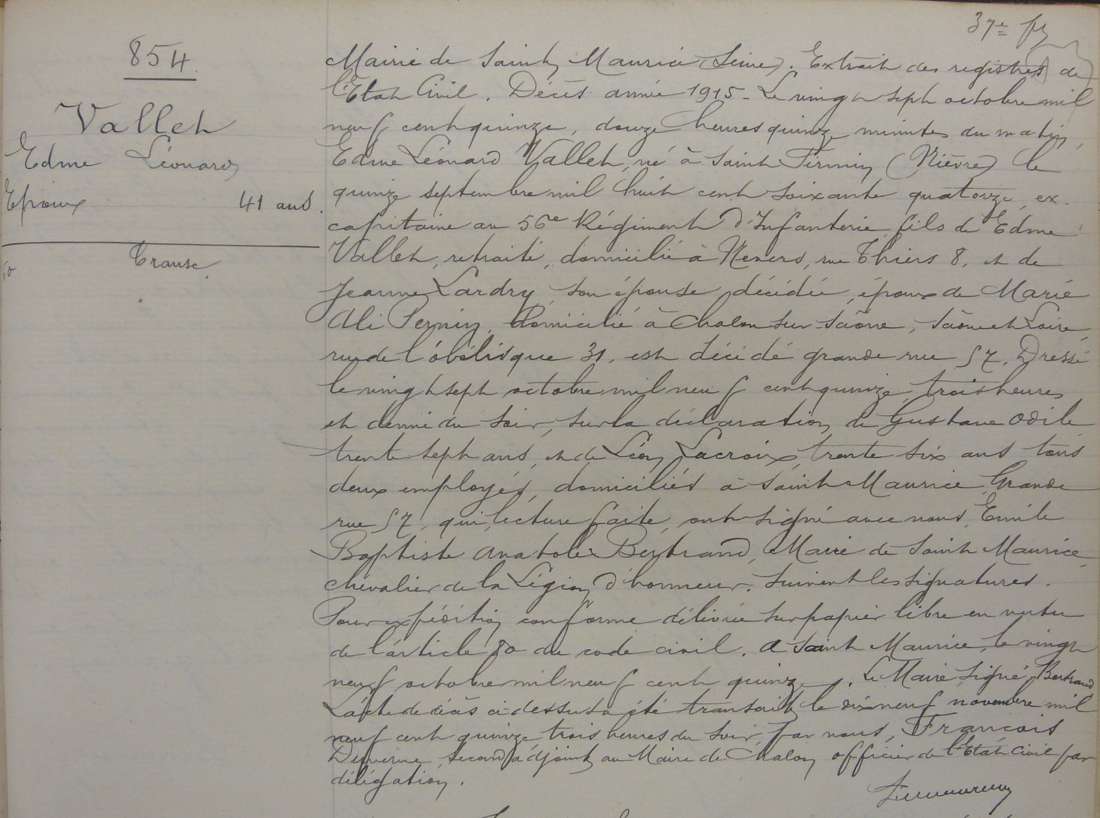 37e
854
Vallet
Edme Léonard
Epoux 41 ans.
Transc.
Mairie de Saint Maurice (Seine). Extrait des registres de
l'Etat Civil. Décès année 1915 - Le vingt sept octobre mil
neuf cent quinze, douze heures quinze minutes du matin,
Edme Léonard Vallet, né à Saint Firmin (Nièvre) le
quinze septembre mil huit cent soixante quatorze, ex-
capitaine au 56e Régiment d'Infanterie, fils de Edme
Vallet, retraité, domicilié à Nevers, rue Thiers 8, et de
Jeanne Lardry, son épouse décédée, époux de Marie
domicilié à Chalon sur Saône, Saône et Loire
rue de l'obélisque 31, est décédé grande rue 57. Dressé
le vingt sept octobre mil neuf cent quinze, trois heures
et demie du soir, sur la déclaration de Gustave Odile
trente sept ans, et de Léon Lacroix trente six ans tous
deux employés, domiciliés à Saint Maurice Grande
rue 57, qui, lecture faite, ont signé avec nous, Emile
Baptiste Anatole Bertrand, Maire de Saint Maurice,
chevalier de la Légion d'honneur. Suivent les signatures.
Pour expédition conforme délivrée sur papier libre en vertu
de l'article 80 du code civil. A Saint Maurice, le vingt
neuf octobre mil neuf cent quinze. Le Maire, Signé, Bertrand
L'acte de décès ci dessus a été transcrit le dix neuf novembre mil
neuf cent quinze trois heures du soir, par nous, François
second adjoint au Maire de Chalon officier de l'Etat Civil par
délégation.